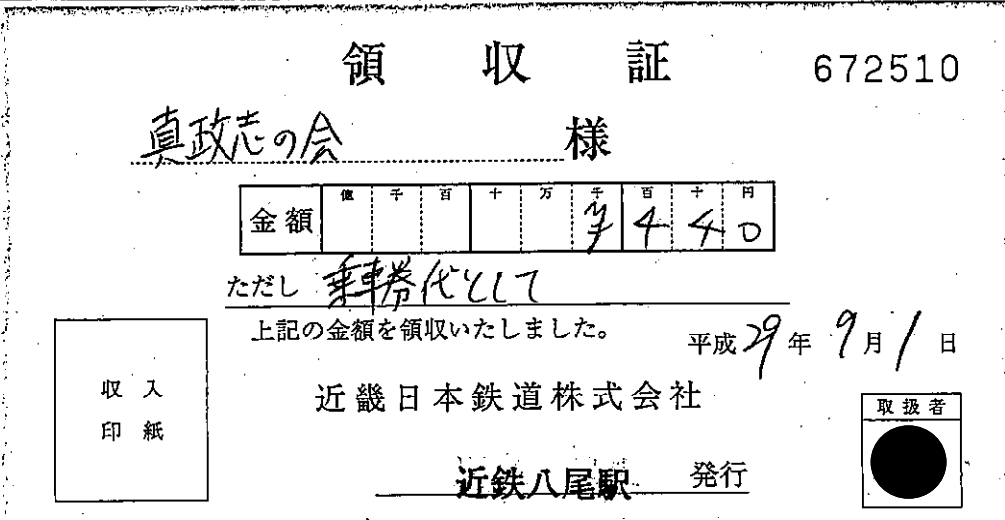 領収証 672510
真政志の会 様
億 千 百 十 万 千 百 十 円
金額 ¥440
ただし 乗車券代として
上記の金額を領収いたしました。
平成29年9月1日
収入
印紙
近畿日本鉄道株式会社
取扱者
近鉄八尾駅 発行